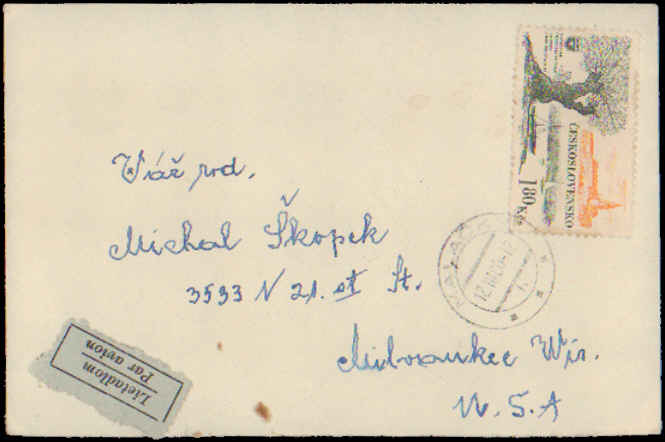 Váž rod.
Michal Škopek
3533 N 21. st St.
Milwaukee Wis.
U. S. A
ČESKOSLOVENSKO
1.80 Kčs
Lietadlom
Par avion